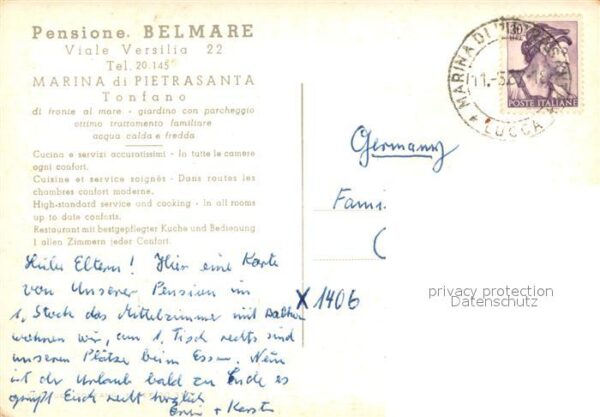 Pensione. BELMARE
Viale Versilia 22
Tel. 20.145
MARINA di PIETRASANTA
Tonfano
di fronte al mare - giardino con parcheggio
ottimo trattamento familiare
acqua calda e fredda
Cucina e servizi accuratissimi - In tutte le camere
ogni confort.
Cuisine et service soignés - Dans toutes les
chambres confort moderne.
High-standard service und cooking - In all rooms
up to date conforts.
Restaurant mit bestgepflegter Kuche und Bedienung
I allen Zimmern jeder Confort.
Eltern! Hier eine Karte
von Unserer Pension im
1. Stock das Mittelzimmer mit
wohnen wir, am 1. Tisch rechts sind
unseren Plätze beim Essen. Nun
ist der Urlaub bald zu Ende es
grüßt Euch recht herzlich
Erwin +
MARINA DI
LUCCA
130
POSTE ITALIANE
Germany
Fami
(
X1406
privacy protection
Datenschutz